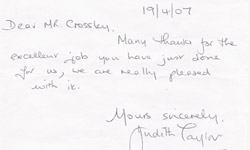 19/4/07
Dear MR. Crossley.
Many thanks for the
excellent job you have just done
for us, we are really pleased
with it.
Yours sincerely.
Judith Taylor